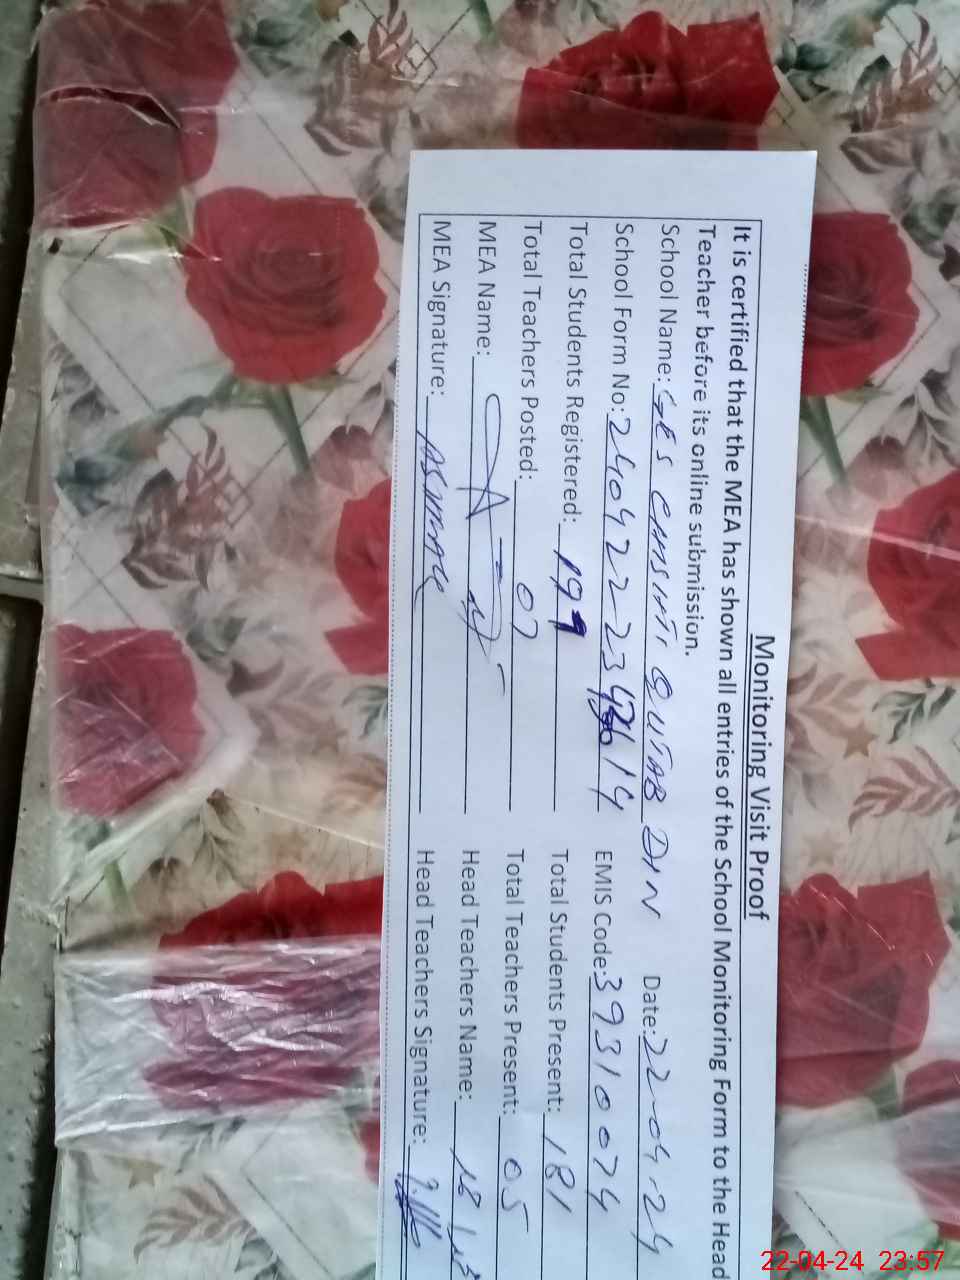 Monitoring Visit Proof
It is certified that the MEA has shown all entries of the School Monitoring Form to the Head
Teacher before its online submission.
School Name: GES CHISHTI QUTAB DIN Date: 22-04-24
School Form No: 240422-23 14 EMIS Code: 39310074
Total Students Registered: 199 Total Students Present: 181
Total Teachers Posted: 07 Total Teachers Present: 05
MEA Name: Head Teachers Name:
MEA Signature: Head Teachers Signature:
22-04-24 23:57